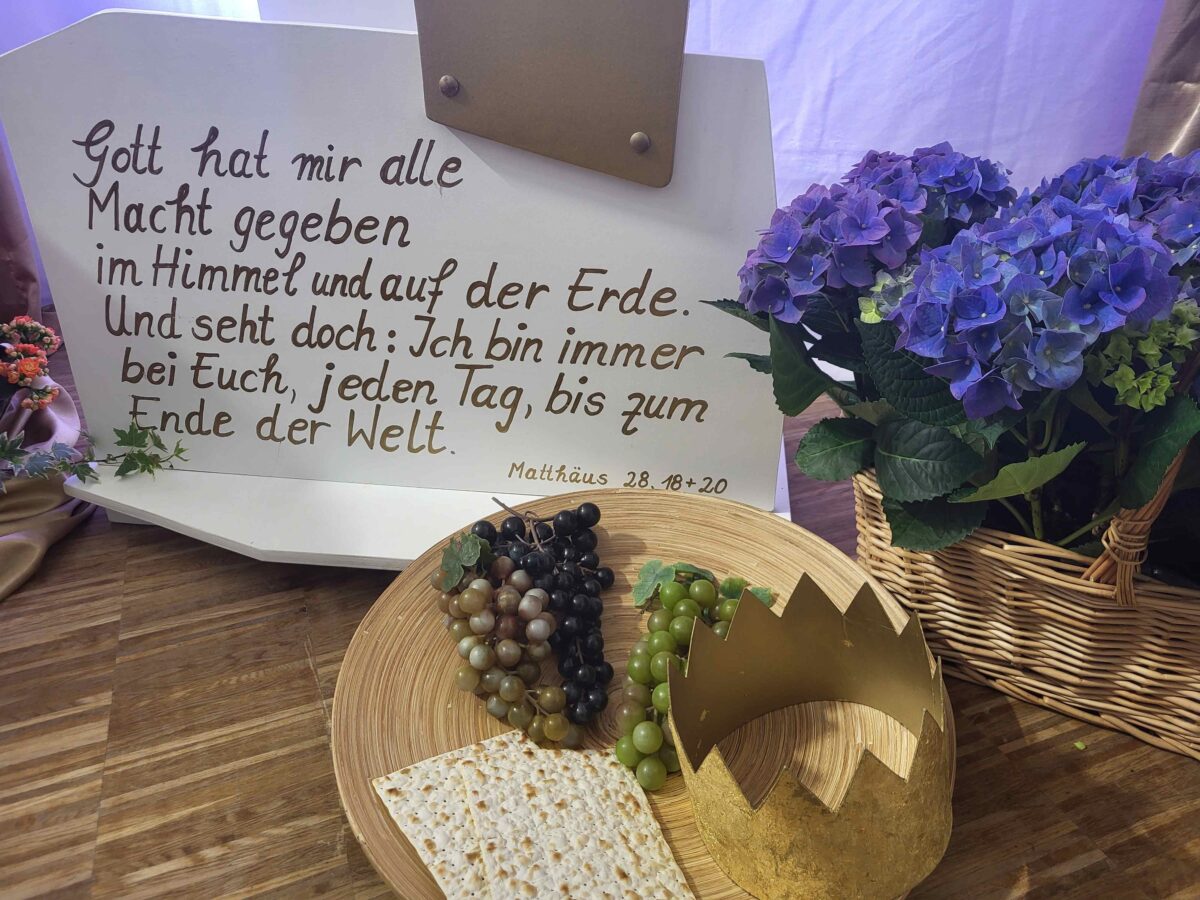 Gott hat mir alle
Macht gegeben
im Himmel und auf der Erde.
Und seht doch: Ich bin immer
bei Euch, jeden Tag, bis zum
Ende der Welt.
Matthäus 28.18+20